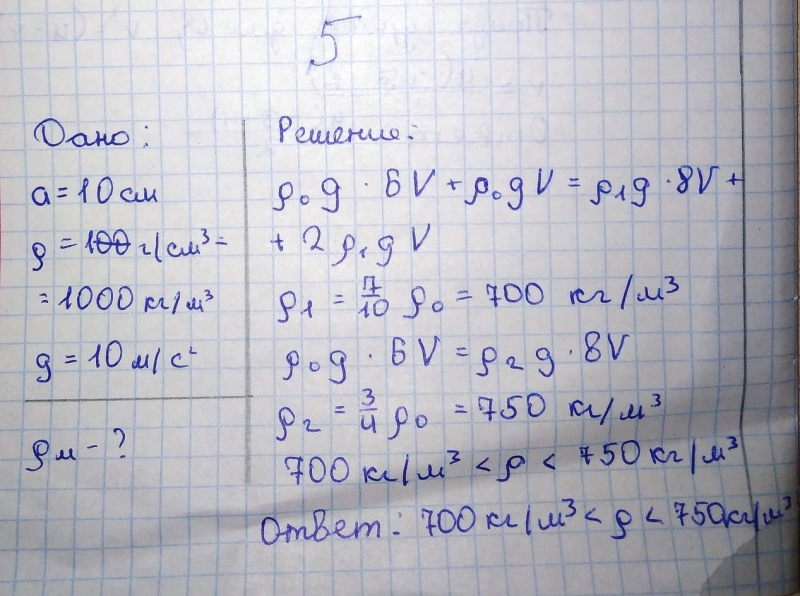 5
Дано:
a = 10 см
ρ = 100 г/см³ =
= 1000 кг/м³
g = 10 м/с²
ρм - ?
Решение:
ρ₀g · 6V + ρ₀gV = ρ₁g · 8V +
+ 2ρ₁gV
ρ₁ = 7/10 ρ₀ = 700 кг/м³
ρ₀g · 6V = ρ₂g · 8V
ρ₂ = 3/4 ρ₀ = 750 кг/м³
700 кг/м³ < ρ < 750 кг/м³
Ответ: 700 кг/м³ < ρ < 750 кг/м³